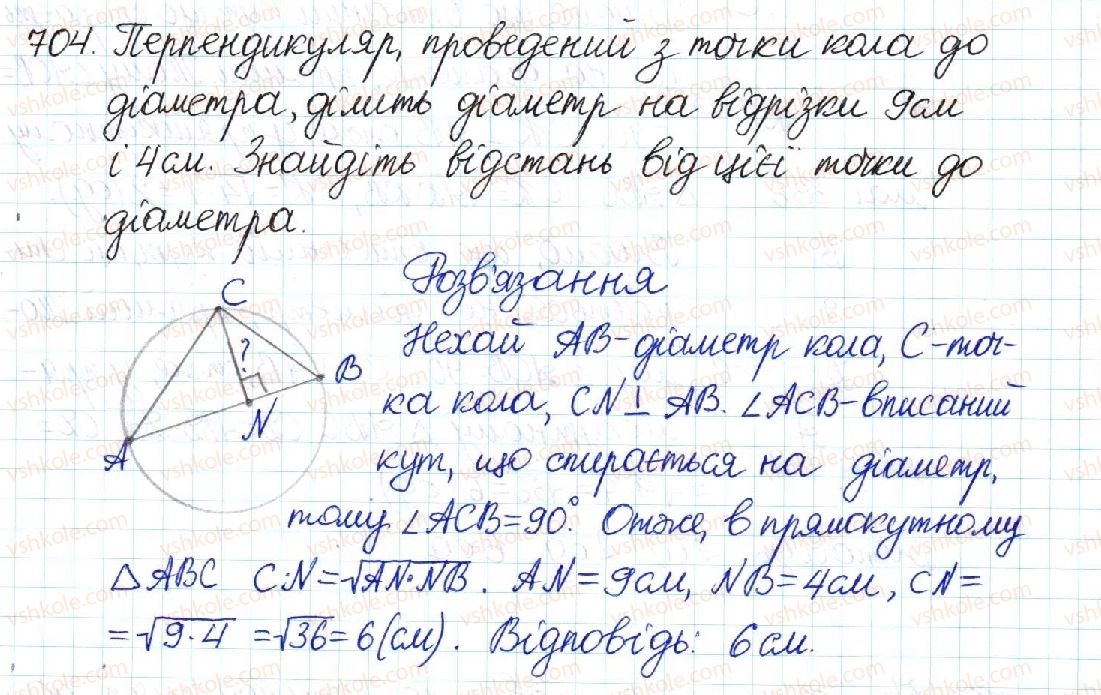 704. Перпендикуляр, проведений з точки кола до
діаметра, ділить діаметр на відрізки 9см
і 4см. Знайдіть відстань від цієї точки до
діаметра.
Розв'язання
C
?
B
N
A
Нехай AB-діаметр кола, C-точ-
ка кола, CN⊥AB. ∠ACB-вписаний
кут, що спирається на діаметр,
тому ∠ACB=90°. Отже, в прямокутному
△ABC CN=√AN·NB. AN=9см, NB=4см, CN=
=√9·4 =√36=6(см). Відповідь: 6см.
vshkole.com